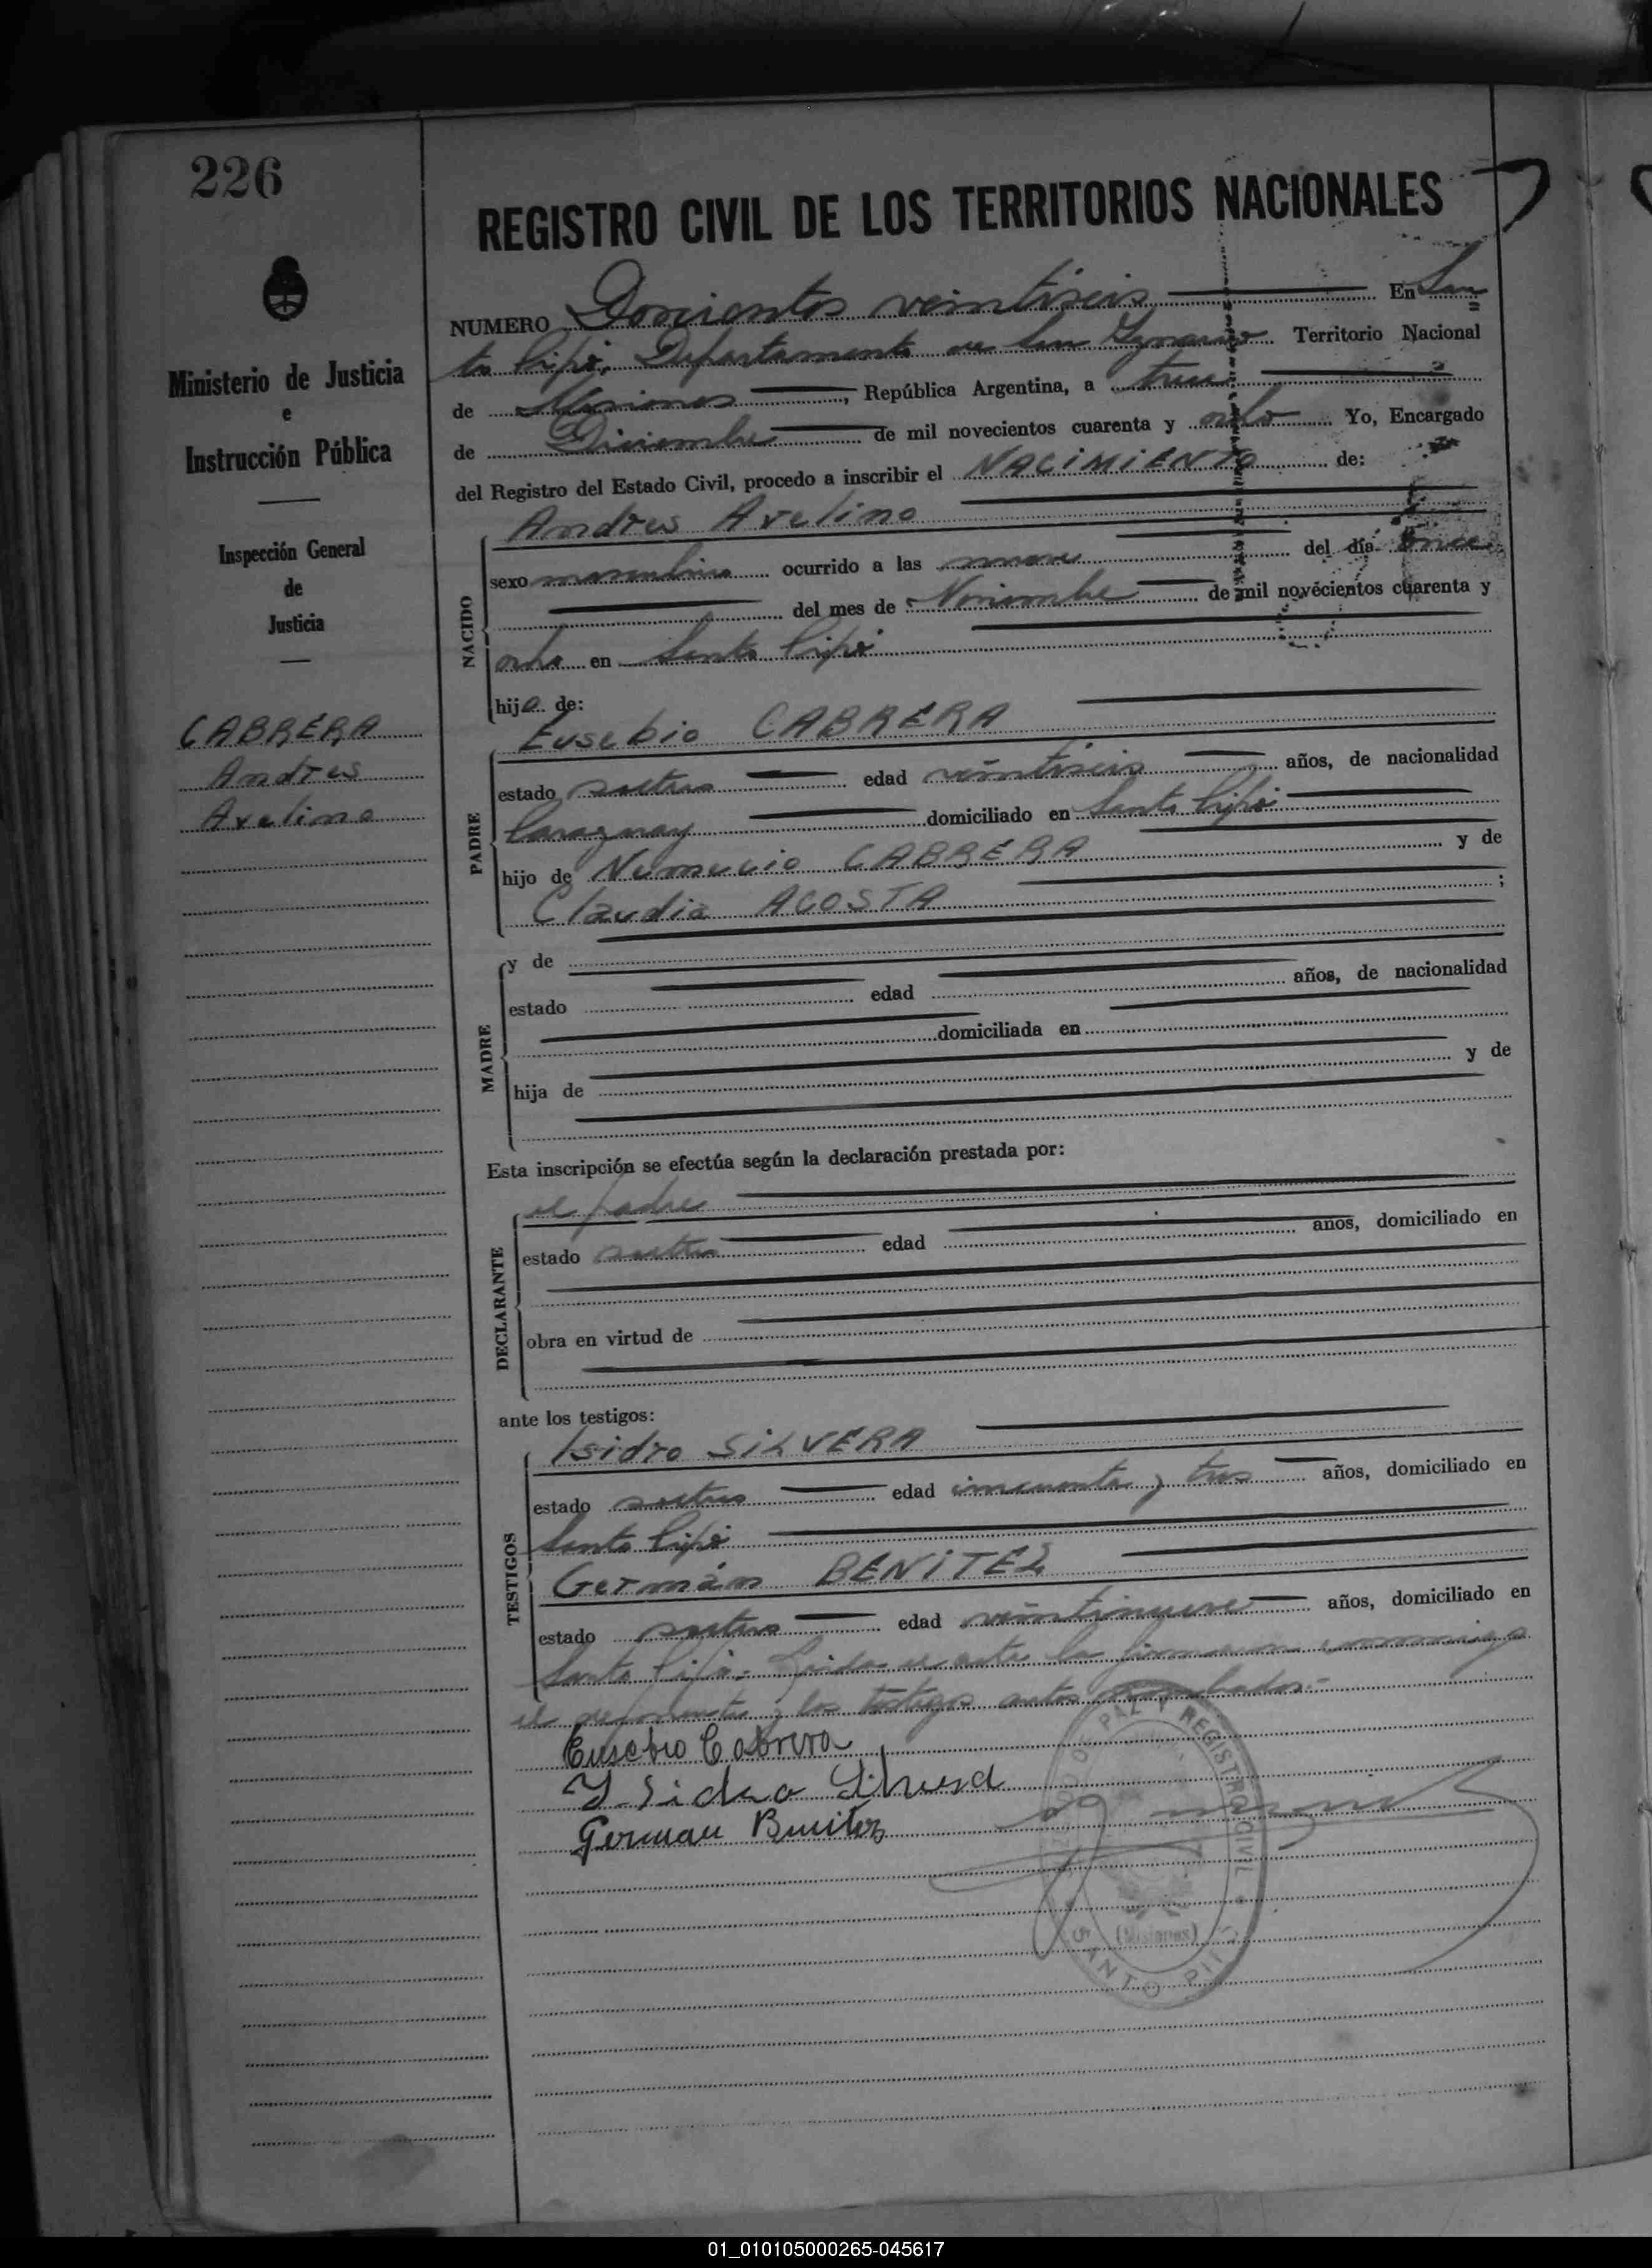 226
REGISTRO CIVIL DE LOS TERRITORIOS NACIONALES
NUMERO Doscientos veintiseis En San
to Pipó, Departamento de San Ignacio Territorio Nacional
de Misiones, República Argentina, a trece
de Diciembre de mil novecientos cuarenta y ocho Yo, Encargado
del Registro del Estado Civil, procedo a inscribir el NACIMIENTO de:
Ministerio de Justicia
e
Instrucción Pública
Inspección General
de
Justicia
CABRERA
Andres
Avelino
NACIDO
Andres Avelino
sexo masculino ocurrido a las nueve del día Once
del mes de Noviembre de mil novecientos cuarenta y
ocho en Santo Pipó
hijo de:
PADRE
Eusebio CABRERA
estado soltero edad veintiseis años, de nacionalidad
Paraguay domiciliado en Santo Pipó
hijo de CABRERA y de
Claudia ACOSTA ;
MADRE
y de
estado edad años, de nacionalidad
domiciliada en
hija de y de
Esta inscripción se efectúa según la declaración prestada por:
DECLARANTE
el padre
estado soltero edad años, domiciliado en
obra en virtud de
ante los testigos:
TESTIGOS
Isidro SILVERA
estado soltero edad cincuenta y tres años, domiciliado en
Santo Pipó
Germán BENITEZ
estado soltero edad veintinueve años, domiciliado en
Santo Pipó. Leida el acta la firmaron conmigo
el exponente y los testigos antes
Eusebio Cabrera
Isidro Silvera
German Benitez
DE PAZ Y REGISTRO CIVIL
(Misiones)
SANTO PIPÓ
01_010105000265-045617